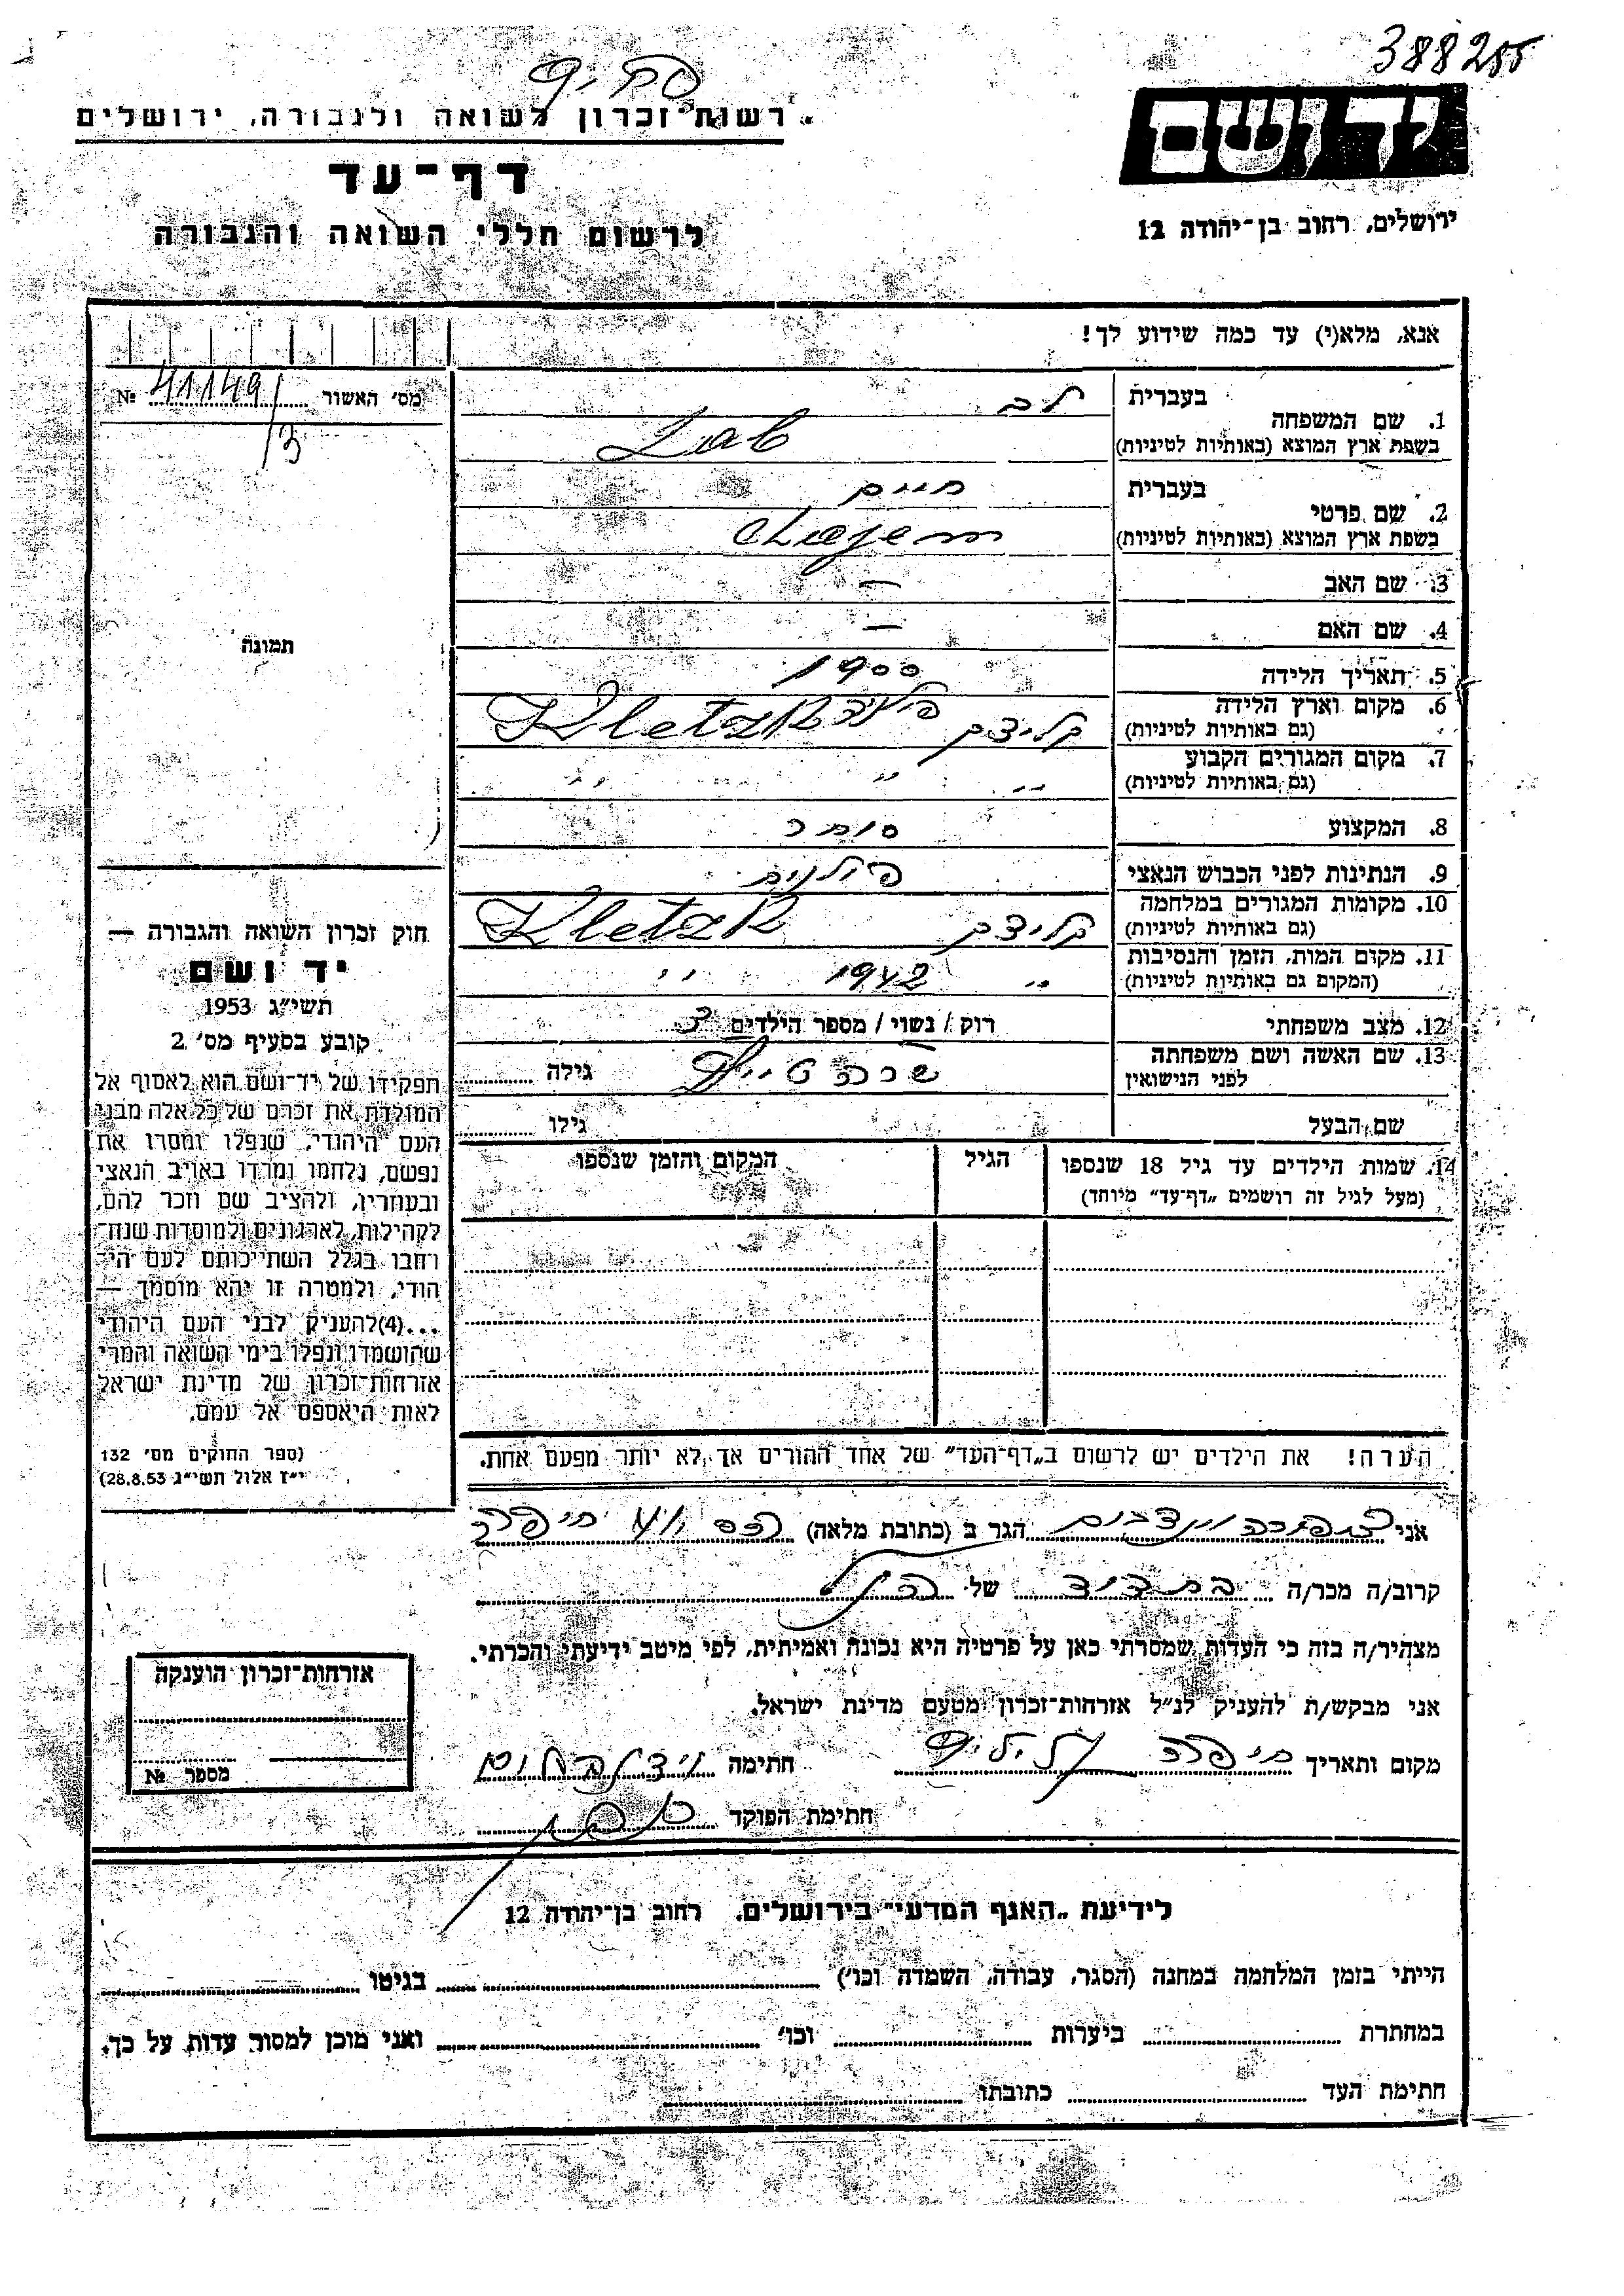 388255
יד ושם
ירושלים, רחוב בן־יהודה 12
רשות־זכרון לשואה ולגבורה, ירושלים
דף־עד
לרשום חללי השואה והגבורה
אנא, מלא(י) עד כמה שידוע לך!
מס' האשור 41149/ №
3
בעברית לב
1. שם המשפחה
בשפת ארץ המוצא (באותיות לטיניות) Lab
בעברית חיים
2. שם פרטי
בשפת ארץ המוצא (באותיות לטיניות) Chajem
3. שם האב —
4. שם האם —
5. תאריך הלידה 1900
6. מקום וארץ הלידה
(גם באותיות לטיניות) קליצק Kletzk
7. מקום המגורים הקבוע
(גם באותיות לטיניות) " " "
8. המקצוע סוחר
9. הנתינות לפני הכבוש הנאצי פולנית
10. מקומות המגורים במלחמה
(גם באותיות לטיניות) קליצק Kletzk
11. מקום המות, הזמן והנסיבות
(המקום גם באותיות לטיניות) " 1942 "
12. מצב משפחתי רוק / נשוי / מספר הילדים 3
13. שם האשה ושם משפחתה
לפני הנישואין שרה גילה
שם הבעל גילו
14. שמות הילדים עד גיל 18 שנספו הגיל המקום והזמן שנספו
(מעל לגיל זה רושמים „דף־עד" מיוחד)
הערה! את הילדים יש לרשום ב„דף־העד" של אחד ההורים אך לא יותר מפעם אחת.
תמונה
חוק זכרון השואה והגבורה —
יד ושם
תשי"ג 1953
קובע בסעיף מס' 2
תפקידו של יד־ושם הוא לאסוף אל
המולדת את זכרם של כל אלה מבני
העם היהודי, שנפלו ומסרו את
נפשם, נלחמו ומרדו באויב הנאצי
ובעוזריו, ולהציב שם וזכר להם,
לקהילות, לארגונים ולמוסדות שנח־
רבו בגלל השתייכותם לעם הי־
הודי, ולמטרה זו יהא מוסמך —
...(4)להעניק לבני העם היהודי
שהושמדו ונפלו בימי השואה והמרי
אזרחות־זכרון של מדינת ישראל
לאות היאספם אל עמם.
(ספר החוקים מס' 132
י"ז אלול תשי"ג 28.8.53)
אני צפורה הגר ב (כתובת מלאה) חיפה
קרוב/ה מכר/ה בת דוד של הנ"ל
מצהיר/ה בזה כי העדות שמסרתי כאן על פרטיה היא נכונה ואמיתית, לפי מיטב ידיעתי והכרתי.
אני מבקש/ת להעניק לנ"ל אזרחות־זכרון מטעם מדינת ישראל.
מקום ותאריך חיפה חתימה
חתימת הפוקד
אזרחות־זכרון הוענקה
מספר №
לידיעת „האגף המדעי" בירושלים, רחוב בן־יהודה 12
הייתי בזמן המלחמה במחנה (הסגר, עבודה, השמדה וכו') בגיטו
במחתרת ביערות וכו' ואני מוכן למסור עדות על כך.
חתימת העד כתובתו